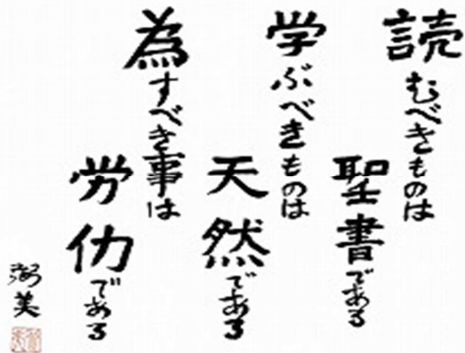 読むべきものは
聖書である
学ぶべきものは
天然である
為すべき事は
労仂である
弥美